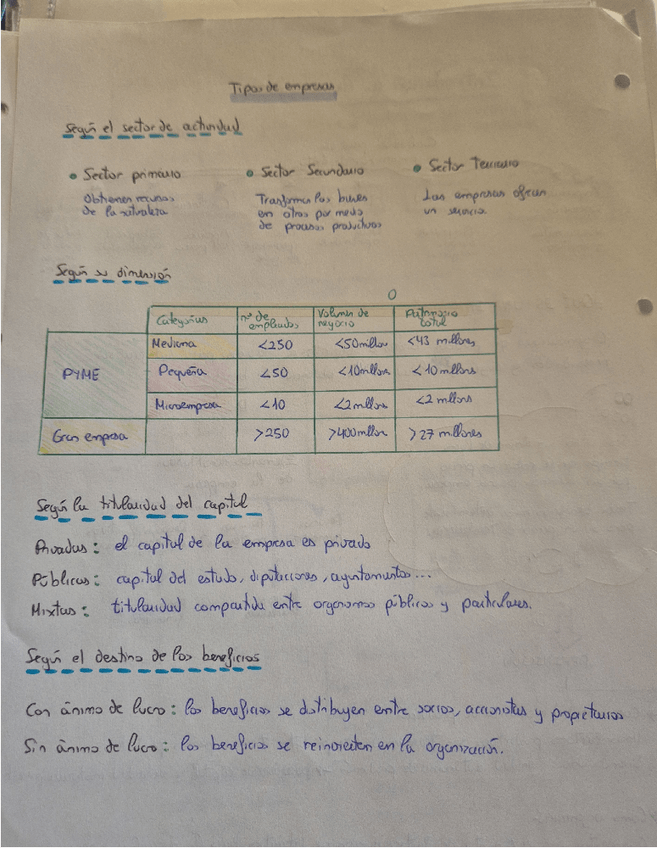 Tipos de empresas
Según el sector de actividad
• Sector primario
Obtienen recursos
de la naturaleza
• Sector Secundario
Transforman los bienes
en otros por medio
de procesos productivos
• Sector Terciario
Las empresas ofrecen
un servicio.
Según su dimensión
O
Categorías nº de empleados Volumen de negocio Patrimonio total
PYME
Mediana <250 <50 millones <43 millones
Pequeña <50 <10 millones <10 millones
Microempresa <10 <2 millones <2 millones
Gran empresa >250 >400 millones >27 millones
Según la titularidad del capital
Privadas: el capital de la empresa es privado
Públicas: capital del estado, diputaciones, ayuntamientos...
Mixtas: titularidad compartida entre organismos públicos y particulares.
Según el destino de los beneficios
Con ánimo de lucro: los beneficios se distribuyen entre socios, accionistas y propietarios
Sin ánimo de lucro: los beneficios se reinvierten en la organización.